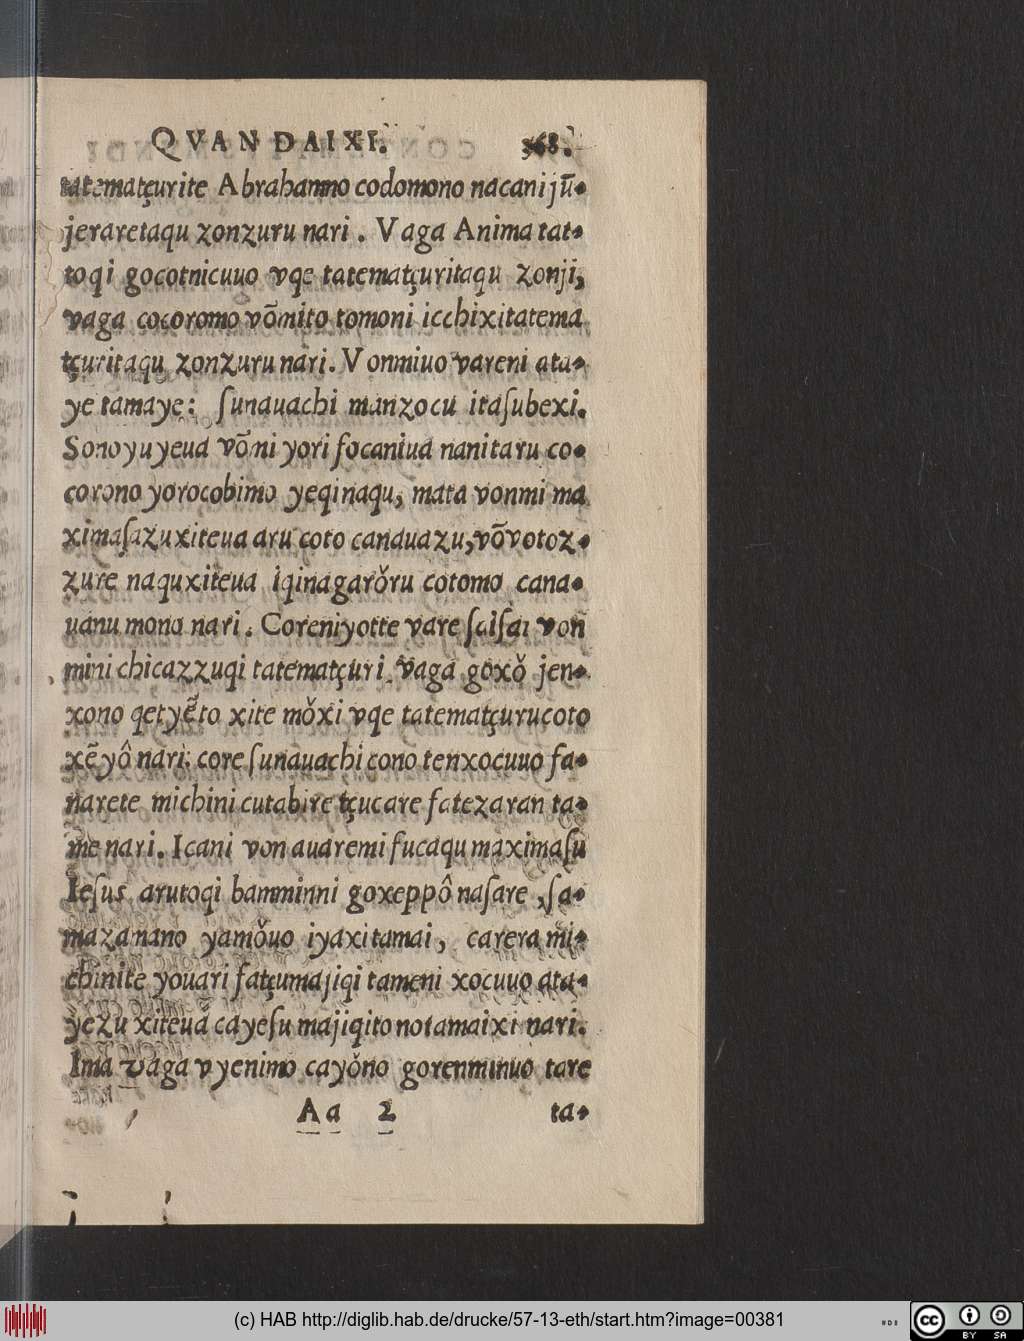 QVAN DAIXI. 368.
tatematçurite Abrahanno codomono nacani jū-
jeraretaqu zonzuru nari. Vaga Anima tat-
toqi gocotnicuuo vqe tatematçuritaqu zonji,
vaga cocoromo võmito tomoni icchixitatema
tçuritaqu zonzuru nari. Vonmiuo vareni ata-
ye tamaye: ſunauachi manzocu itaſubexi.
Sonoyuyeua võni yori focaniua nanitaru co-
corono yorocobimo yeqinaqu, mata vonmi ma
ximaſazuxiteua aru coto canauazu, võvotoz-
zure naquxiteua iqinagarǒru cotomo cana-
uanu mono nari. Coreniyotte vare ſaiſai von
mini chicazzuqi tatematçuri, vaga goxǒ jen-
xono qetyẽto xite mǒxi vqe tatematçurucoto
xẽyô nari: core ſunauachi cono tenxocuuo fa-
narete michini cutabire tçucare fatezaran ta-
me nari. Icani von auaremi fucaqu maximaſu
Ieſus, arutoqi bamminni goxeppô naſare, ſa-
mazamano yamǒuo iyaxitamai, carera mi-
chinite youari fatçumajiqi tameni xocuuo ata-
yezu xiteua cayeſu majiqito notamaixi nari.
Ima vaga vyenimo cayǒno gorenminuo tare
Aa 2 ta-
(c) HAB http://diglib.hab.de/drucke/57-13-eth/start.htm?image=00381
cc BY SA